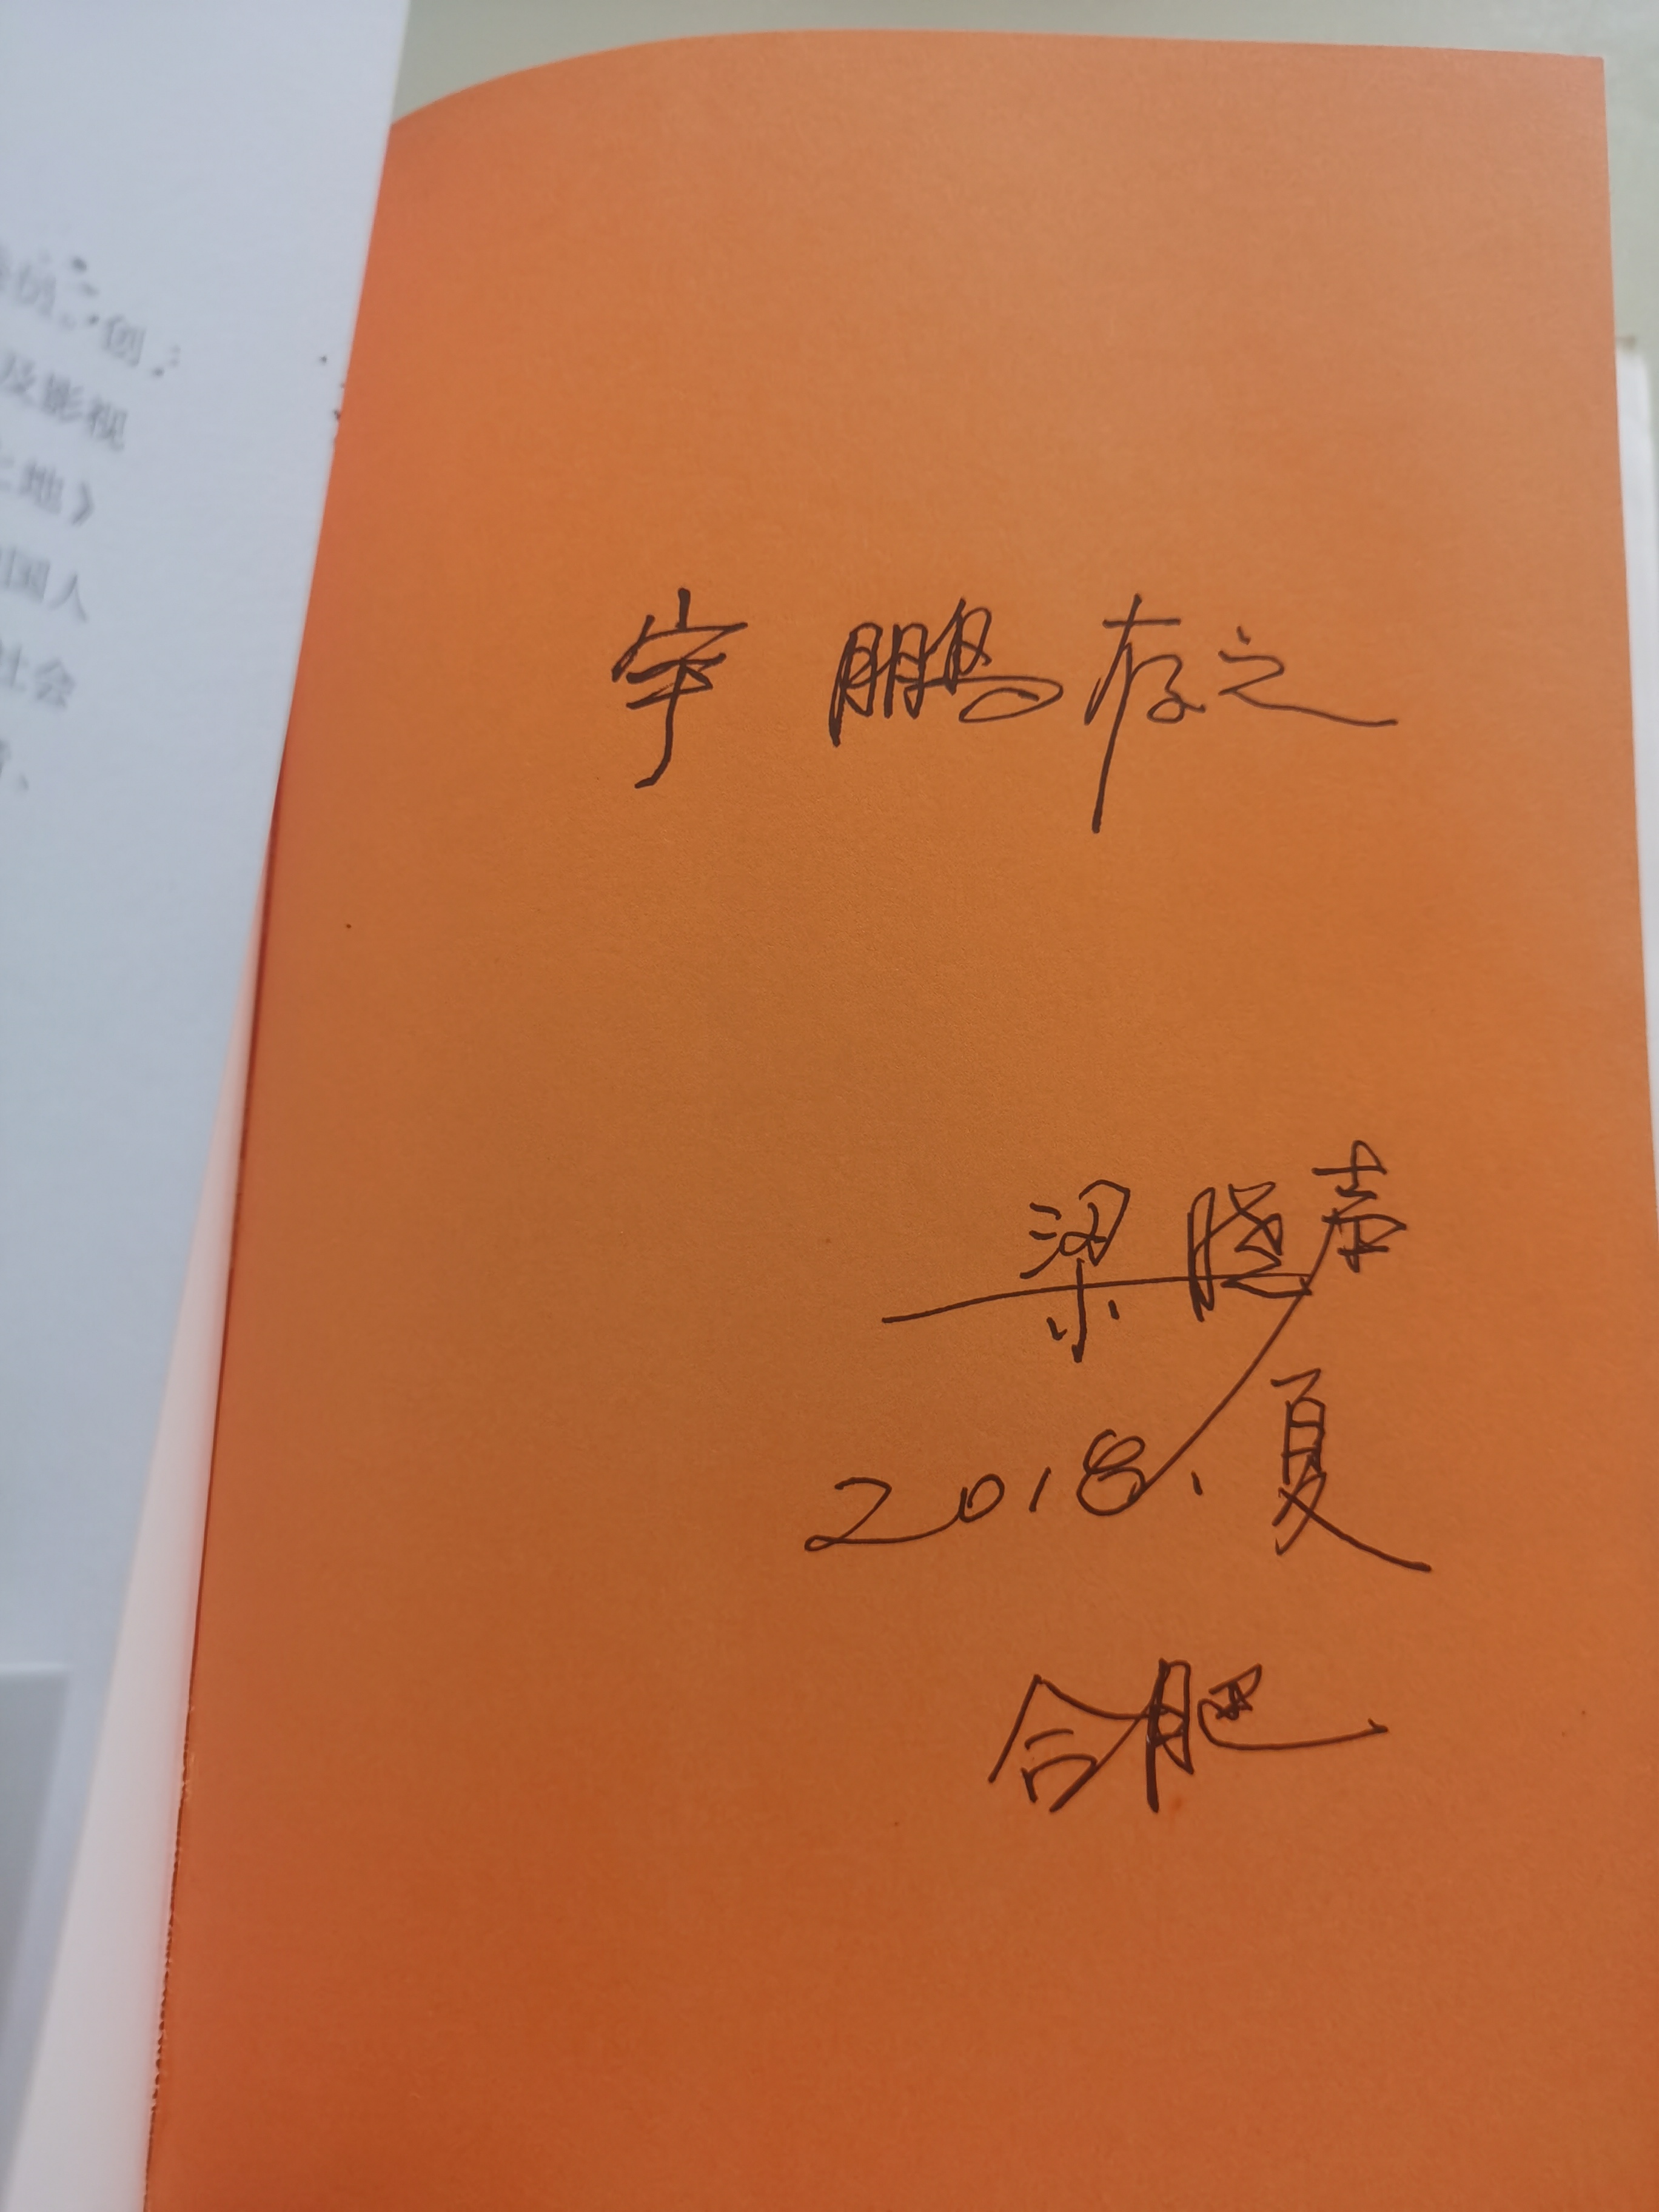 创
及影视
地》
国人
社会
宇鹏存之
梁晓声
2018、夏
合肥